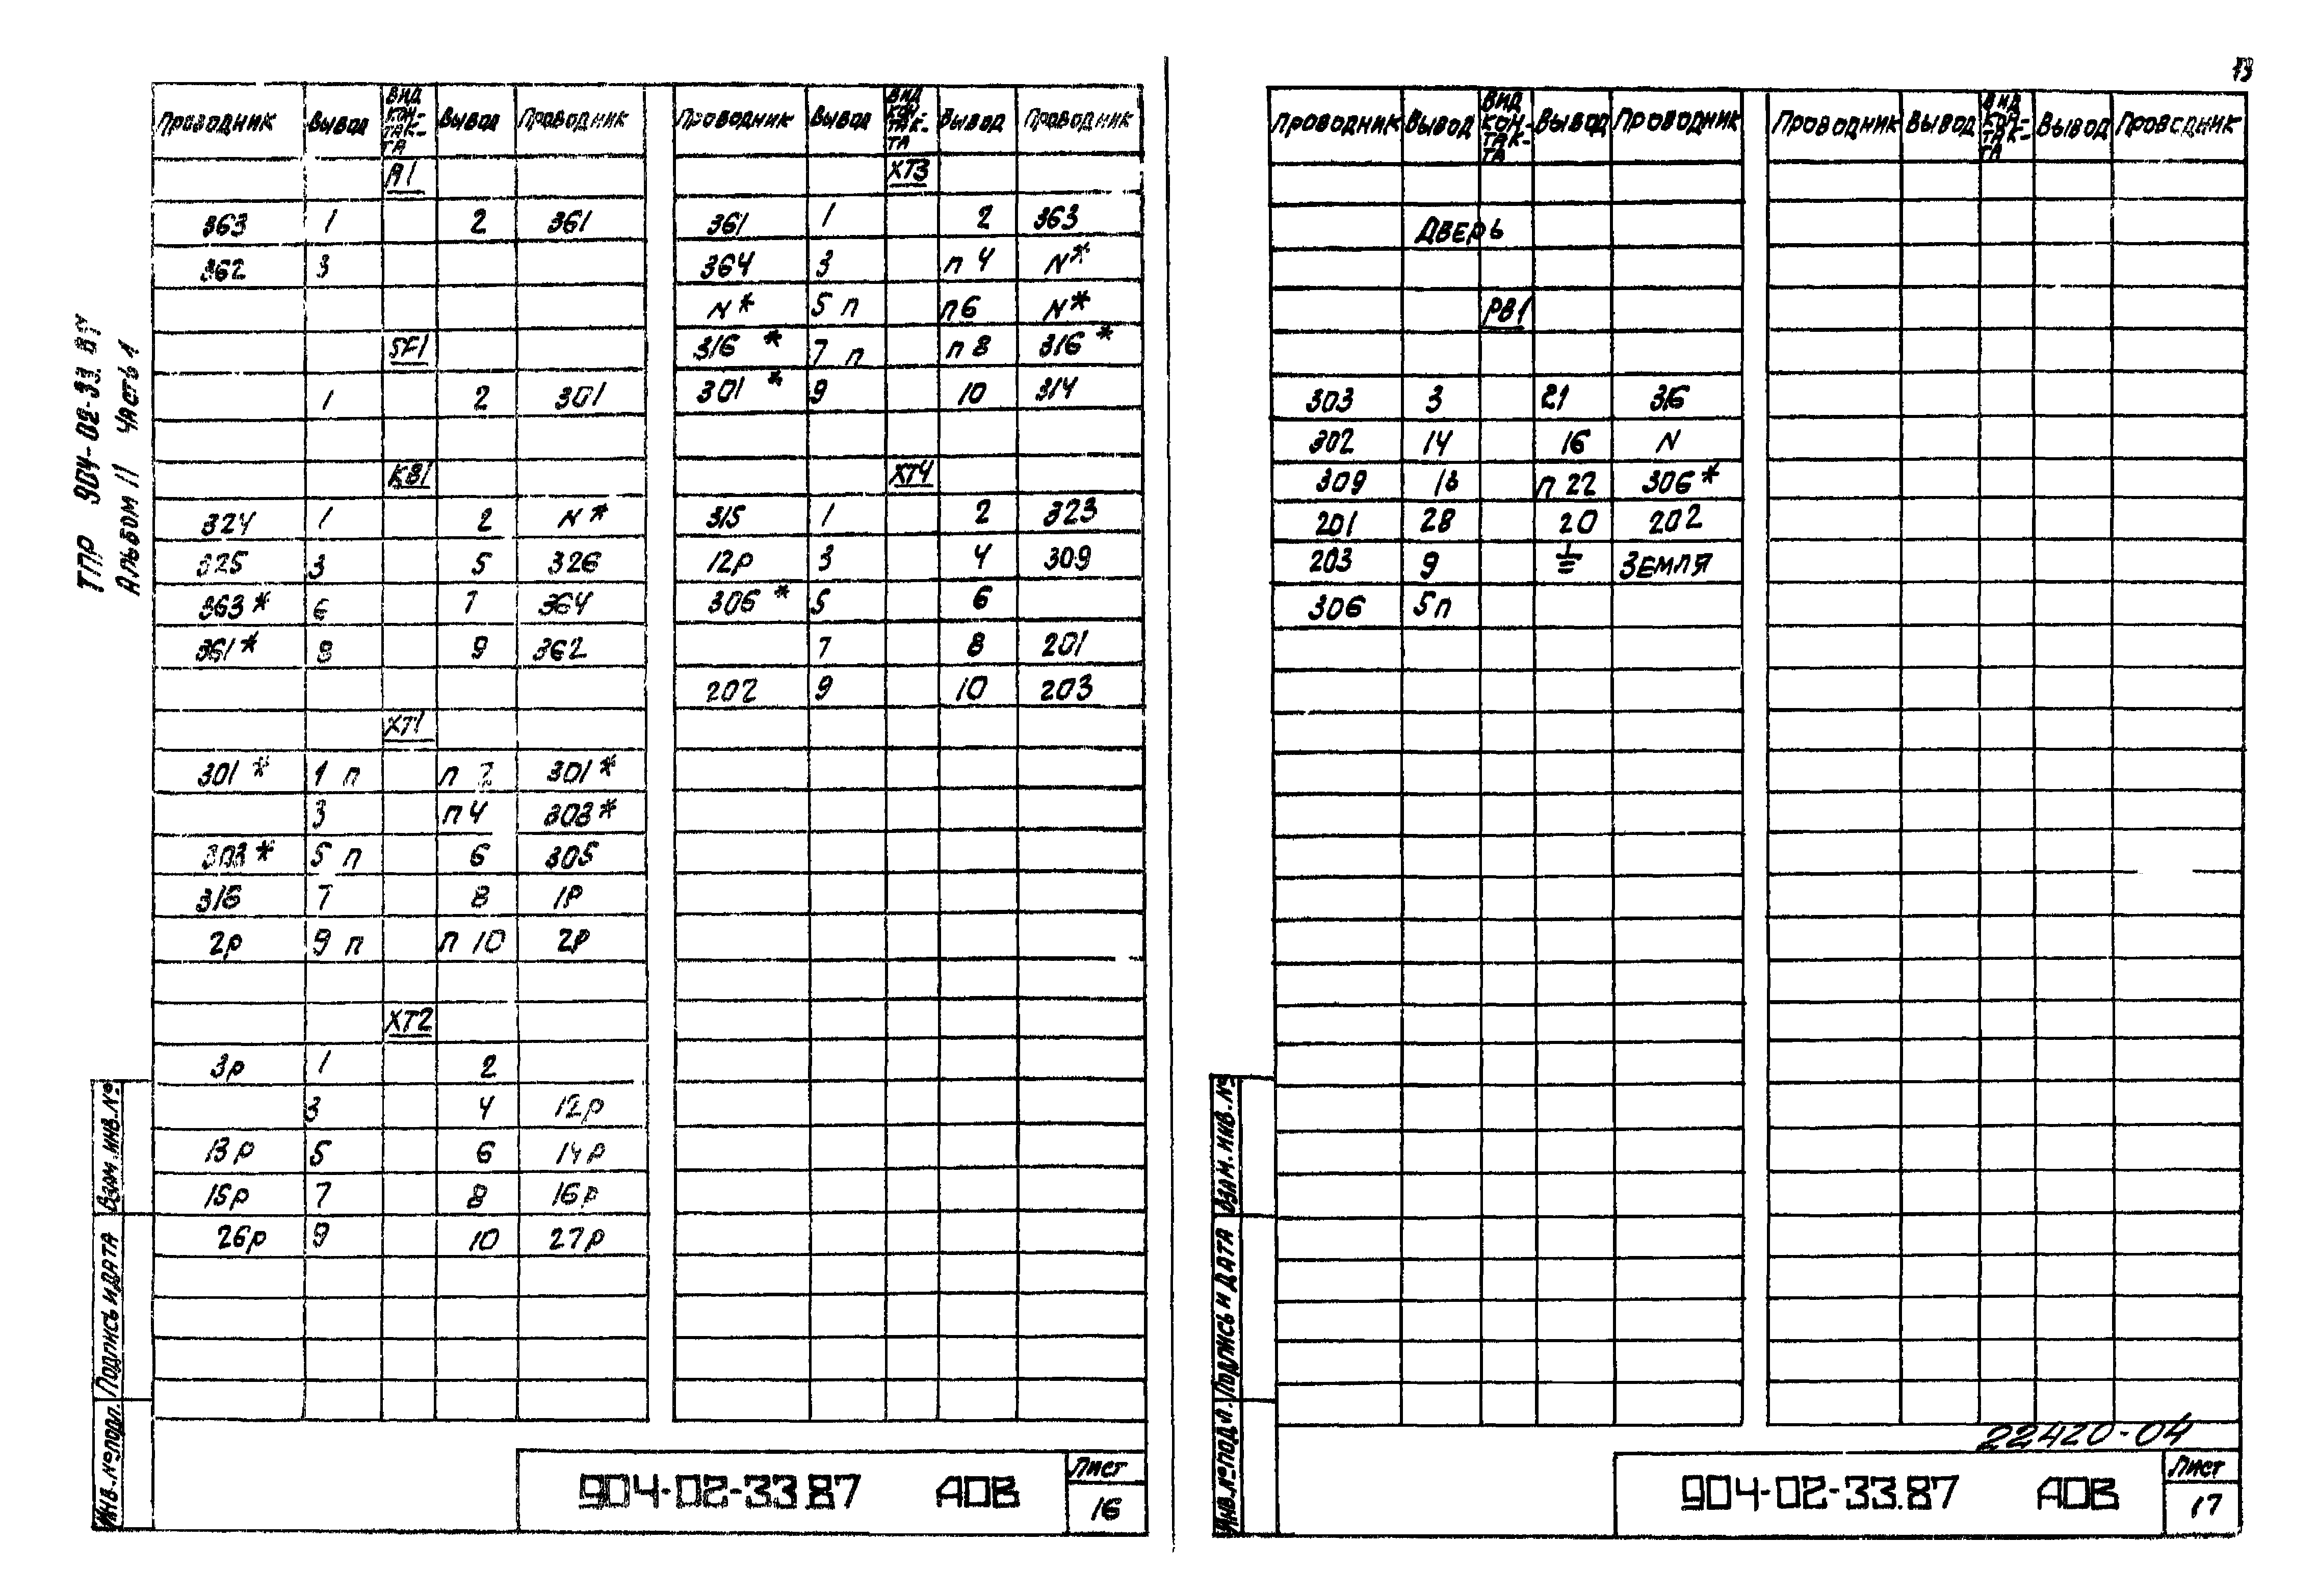 ТПР 904-02-33.87
Альбом II Часть 1
Проводник Вывод Вид контак-та Вывод Проводник
R1
363 1 2 361
362 3
SF1
1 2 301
КВ1
324 1 2 N*
325 3 5 326
363* 6 7 364
361* 8 9 362
ХТ1
301* 1 п п 2 301*
3 п 4 303*
303* 5 п 6 305
316 7 8 1Р
2р 9 п п 10 2Р
ХТ2
3р 1 2
3 4 12р
13р 5 6 14р
15р 7 8 16р
26р 9 10 27р
Проводник Вывод Вид кон-так-та Вывод Проводник
ХТ3
361 1 2 363
364 3 п 4 N*
N* 5 п п6 N*
316* 7 п п 8 316*
301* 9 10 314
ХТ4
315 1 2 323
12р 3 4 309
306* 5 6
7 8 201
202 9 10 203
Взам. инв. №
Подпись и дата
Инв. № подл.
904-02-33.87 АОВ
Лист
16
Проводник Вывод Вид кон-так-та Вывод Проводник
Дверь
РВ1
303 3 21 316
302 14 16 N
309 13 п 22 306*
201 28 20 202
203 9 ⏚ Земля
306 5п
Проводник Вывод Вид кон-так-та Вывод Проводник
Взам. инв. №
Подпись и дата
Инв. № подл.
22420-04
904-02-33.87 АОВ
Лист
17